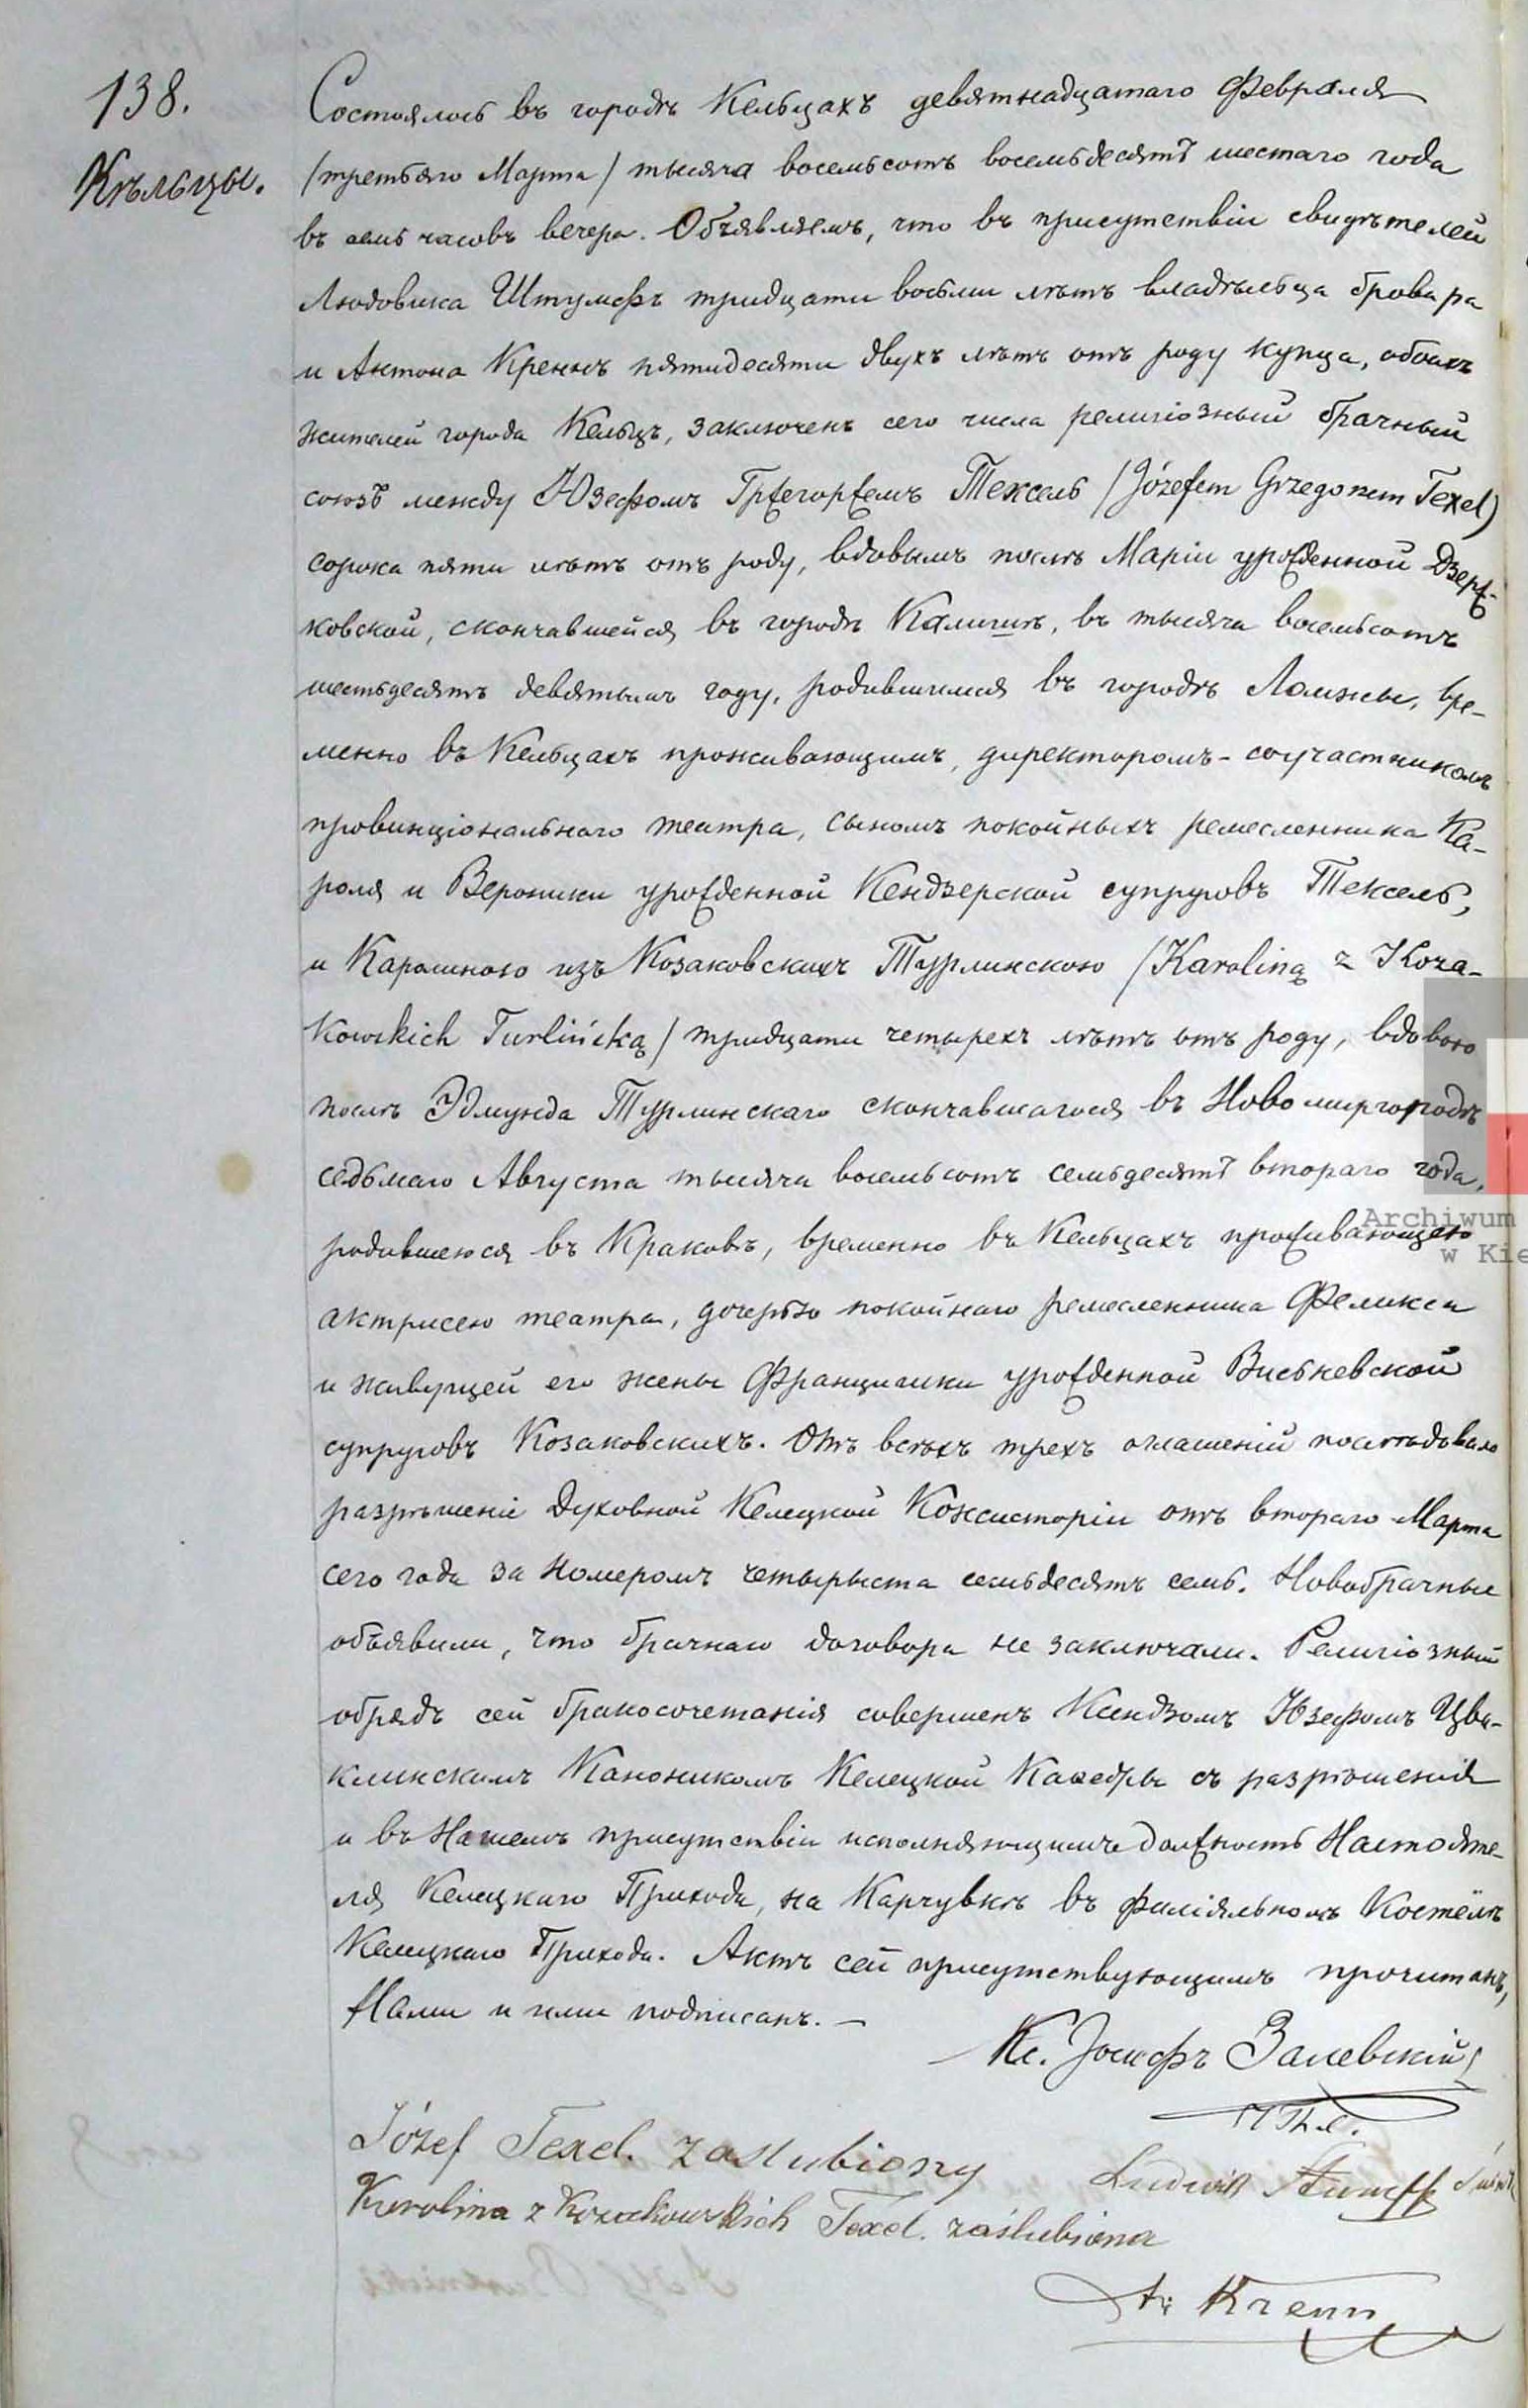 138.
Кѣльцы.
Состоялось въ городѣ Кельцахъ девятнадцатаго Февраля
/третьяго Марта/ тысяча восемьсотъ восемьдесятъ шестаго года
въ семь часовъ вечера. Объявляемъ, что въ присутствіи свидѣтелей
Людовика Штумпфъ тридцати восьми лѣтъ владѣльца бровара
и Антона Креннъ пятидесяти двухъ лѣтъ отъ роду купца, обоихъ
жителей города Кельцъ, заключенъ сего числа религіозный брачный
союзъ между Юзефомъ Гржегоржемъ Тексель /Józefem Grzegorzem Texel)
сорока пяти лѣтъ отъ роду, вдовымъ послѣ Маріи урожденной Дзерж-
ковской, скончавшейся въ городѣ Калишѣ, въ тысяча восемьсотъ
шестьдесятъ девятымъ году, родившимся въ городѣ Ломжы, вре-
менно въ Кельцахъ проживающимъ, директоромъ-соучастникомъ
провинціональнаго театра, сыномъ покойныхъ ремесленника Ка-
роля и Вероники урожденной Кендзерской супруговъ Тексель,
и Каролиною изъ Козаковскихъ Турлинскою /Karoliną z Koza-
kowskich Turlińską/ тридцати четырехъ лѣтъ отъ роду, вдовою
послѣ Эдмунда Турлинскаго скончавшагося въ Новомиргородѣ
седьмаго Августа тысяча восемьсотъ семьдесятъ втораго года,
родившеюся въ Краковѣ, временно въ Кельцахъ проживающею
актрисею театра, дочерью покойнаго ремесленника Феликса
и живущей его жены Францишки урожденной Висьневской
супруговъ Козаковскихъ. Отъ всѣхъ трехъ оглашеній послѣдовало
разрѣшеніе Духовной Келецкой Консисторіи отъ втораго Марта
сего года за номеромъ четырыста семьдесятъ семь. Новобрачные
объявили, что брачнаго договора не заключали. Религіозный
обрядъ сей бракосочетанія совершенъ Ксендзомъ Юзефомъ Цви-
клинскимъ Каноникомъ Келецкой Каѳедры съ разрѣшенія
и въ Нашемъ присутствіи исполняющимъ должность Настояте-
ля Келецкаго Прихода, на Карчувкѣ въ филіяльномъ Костёлѣ
Келецкаго Прихода. Актъ сей присутствующимъ прочитанъ,
Нами и ими подписанъ. —
Кс. Іосифъ Залевскій
Józef Texel. zaslubiony
Ludwik Stumpff
Karolina z Kozakowskich Texel. zaślubiona
An Krenn
Archiwum
w Kie